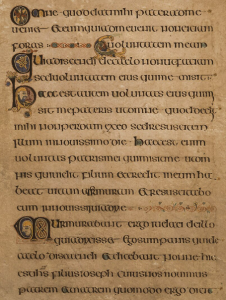 Omne quod dat mihi pater ad me
ueniet Et eum qui uenit ad me non eiciam
foras uoluntatem meam
Quia discendi de caelo non ut faciam
sed uoluntatem eius qui me misit
Haec est autem uoluntas eius qui
sit me patris ut omne quod dedit
mihi non perdam ex eo sed resuscitem
illum in nouissimo die Haec est enim
uoluntas patris mei qui misit me ut om
nis qui uidit filium et credit in eum ha
beat uitam aeternam Et resuscitabo
eum in nouissimo die
Murmurabant ergo iudei de illo
quia dixisset Ego sum panis qui de
caelo discendi et dicebant nonne hic
est ihs filius ioseph cuius nos nouimus
patrem et matrem quomodo ergo dicit